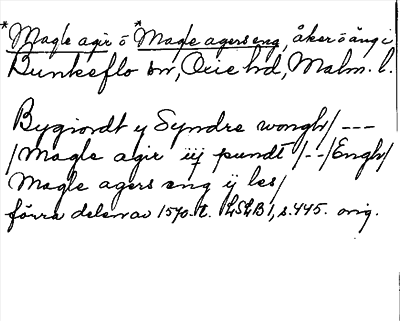 *Magle agir o *Magle agers eng, åker o äng i
Bunkeflo sn, Oxie hd, Malm. l.
Bygiordt y Syndre wongh/ ---
/Magle agir iij pundt /--/Engh/
Magle agers æng ij les/
förra delen av 1570-t. LSLB 1, s. 445. orig.